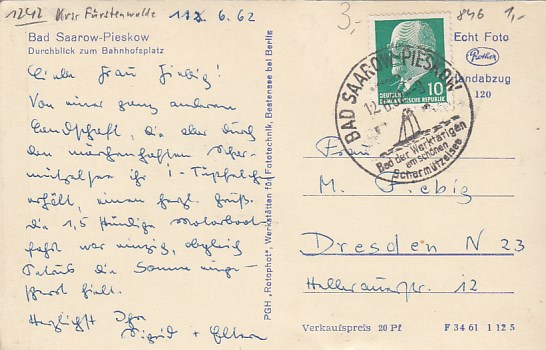 1242 Krsr Fürstenwalde 12. 6. 62
3,- 846 1,-
Bad Saarow-Pieskow
Durchblick zum Bahnhofsplatz
Liebe Frau Fiebig!
Von einer ganz anderen
Landschaft, die aber durch
den märchenhaften Schar-
mützelsee ihr i-Tüpfelchen
erhält, einen herzl. Gruß.
Die 1,5 stündige Motorboot-
fahrt war einzig, obgleich
die Sonne
hielt.
Herzlichst Ihre
Sigrid + Eltern
PGH „Rotophot“, Werkstätten für Fototechnik, Bestensee bei Berlin
Echt Foto
Handabzug
120
10
DEUTSCHE
DEMOKRATISCHE REPUBLIK
BAD SAAROW-PIESKOW
12.6.
Bad der Werktätigen
am schönen
Scharmützelsee
Frau
M. Fiebig
Dresden N 23
Hellerauerstr. 12
Verkaufspreis 20 Pf F 34 61 1 12 5